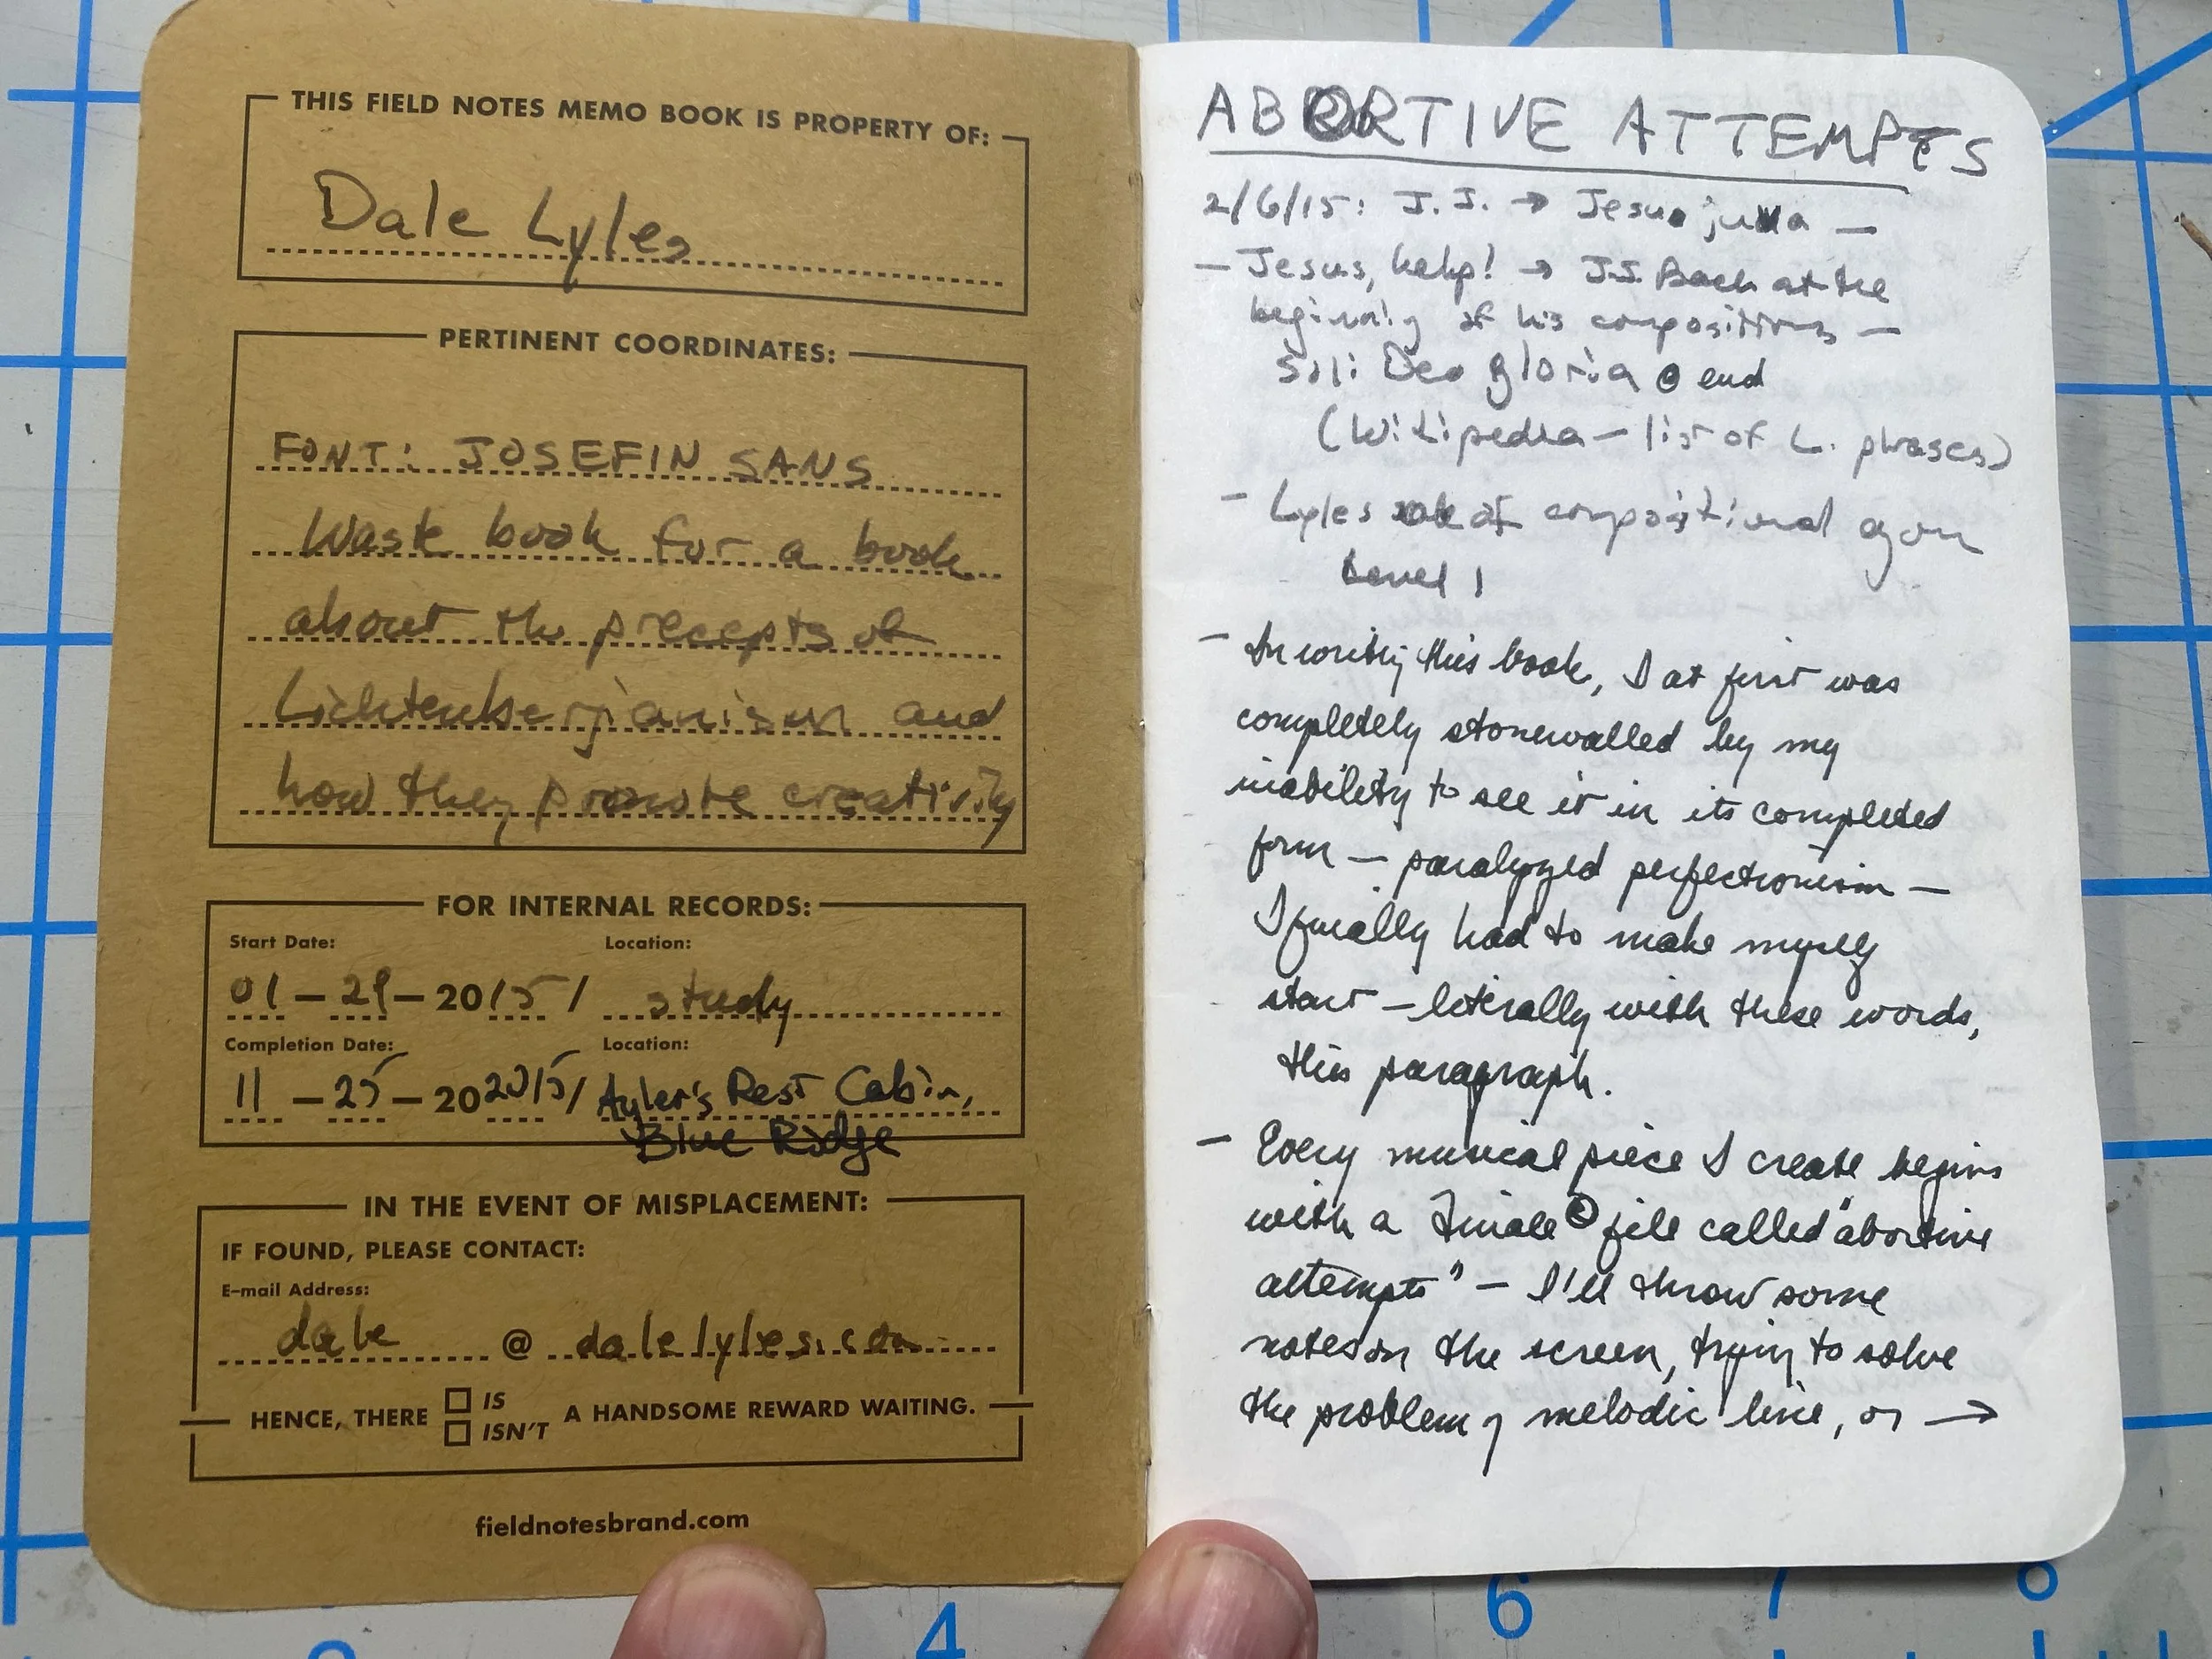 THIS FIELD NOTES MEMO BOOK IS PROPERTY OF:
Dale Lyles
PERTINENT COORDINATES:
FONT: JOSEFIN SANS
Waste book for a book
about the precepts of
Lichtenbergianism and
how they promote creativity
FOR INTERNAL RECORDS:
Start Date: Location:
01-29-2015/ study
Completion Date: Location:
11-25-202015/ Ayler's Rest Cabin,
Blue Ridge
IN THE EVENT OF MISPLACEMENT:
IF FOUND, PLEASE CONTACT:
E-mail Address:
dale @ dalelyles.com
HENCE, THERE IS ISN'T A HANDSOME REWARD WAITING.
fieldnotesbrand.com
ABORTIVE ATTEMPTS
2/6/15: J.J. → Jesu juva —
— Jesus, help! → J.S. Bach at the
beginning of his compositions —
Soli Deo gloria @ end
(Wikipedia — list of L. phrases)
- Lyles of compositional agon
Level 1
- In writing this book, I at first was
completely stonewalled by my
inability to see it in its completed
form — paralyzed perfectionism —
I finally had to make myself
start — literally with these words,
this paragraph.
- Every musical piece I create begins
with a Finale © file called "abortive
attempts" — I'll throw some
notes on the screen, trying to solve
the problem of melodic line, or →
4
6
7
8